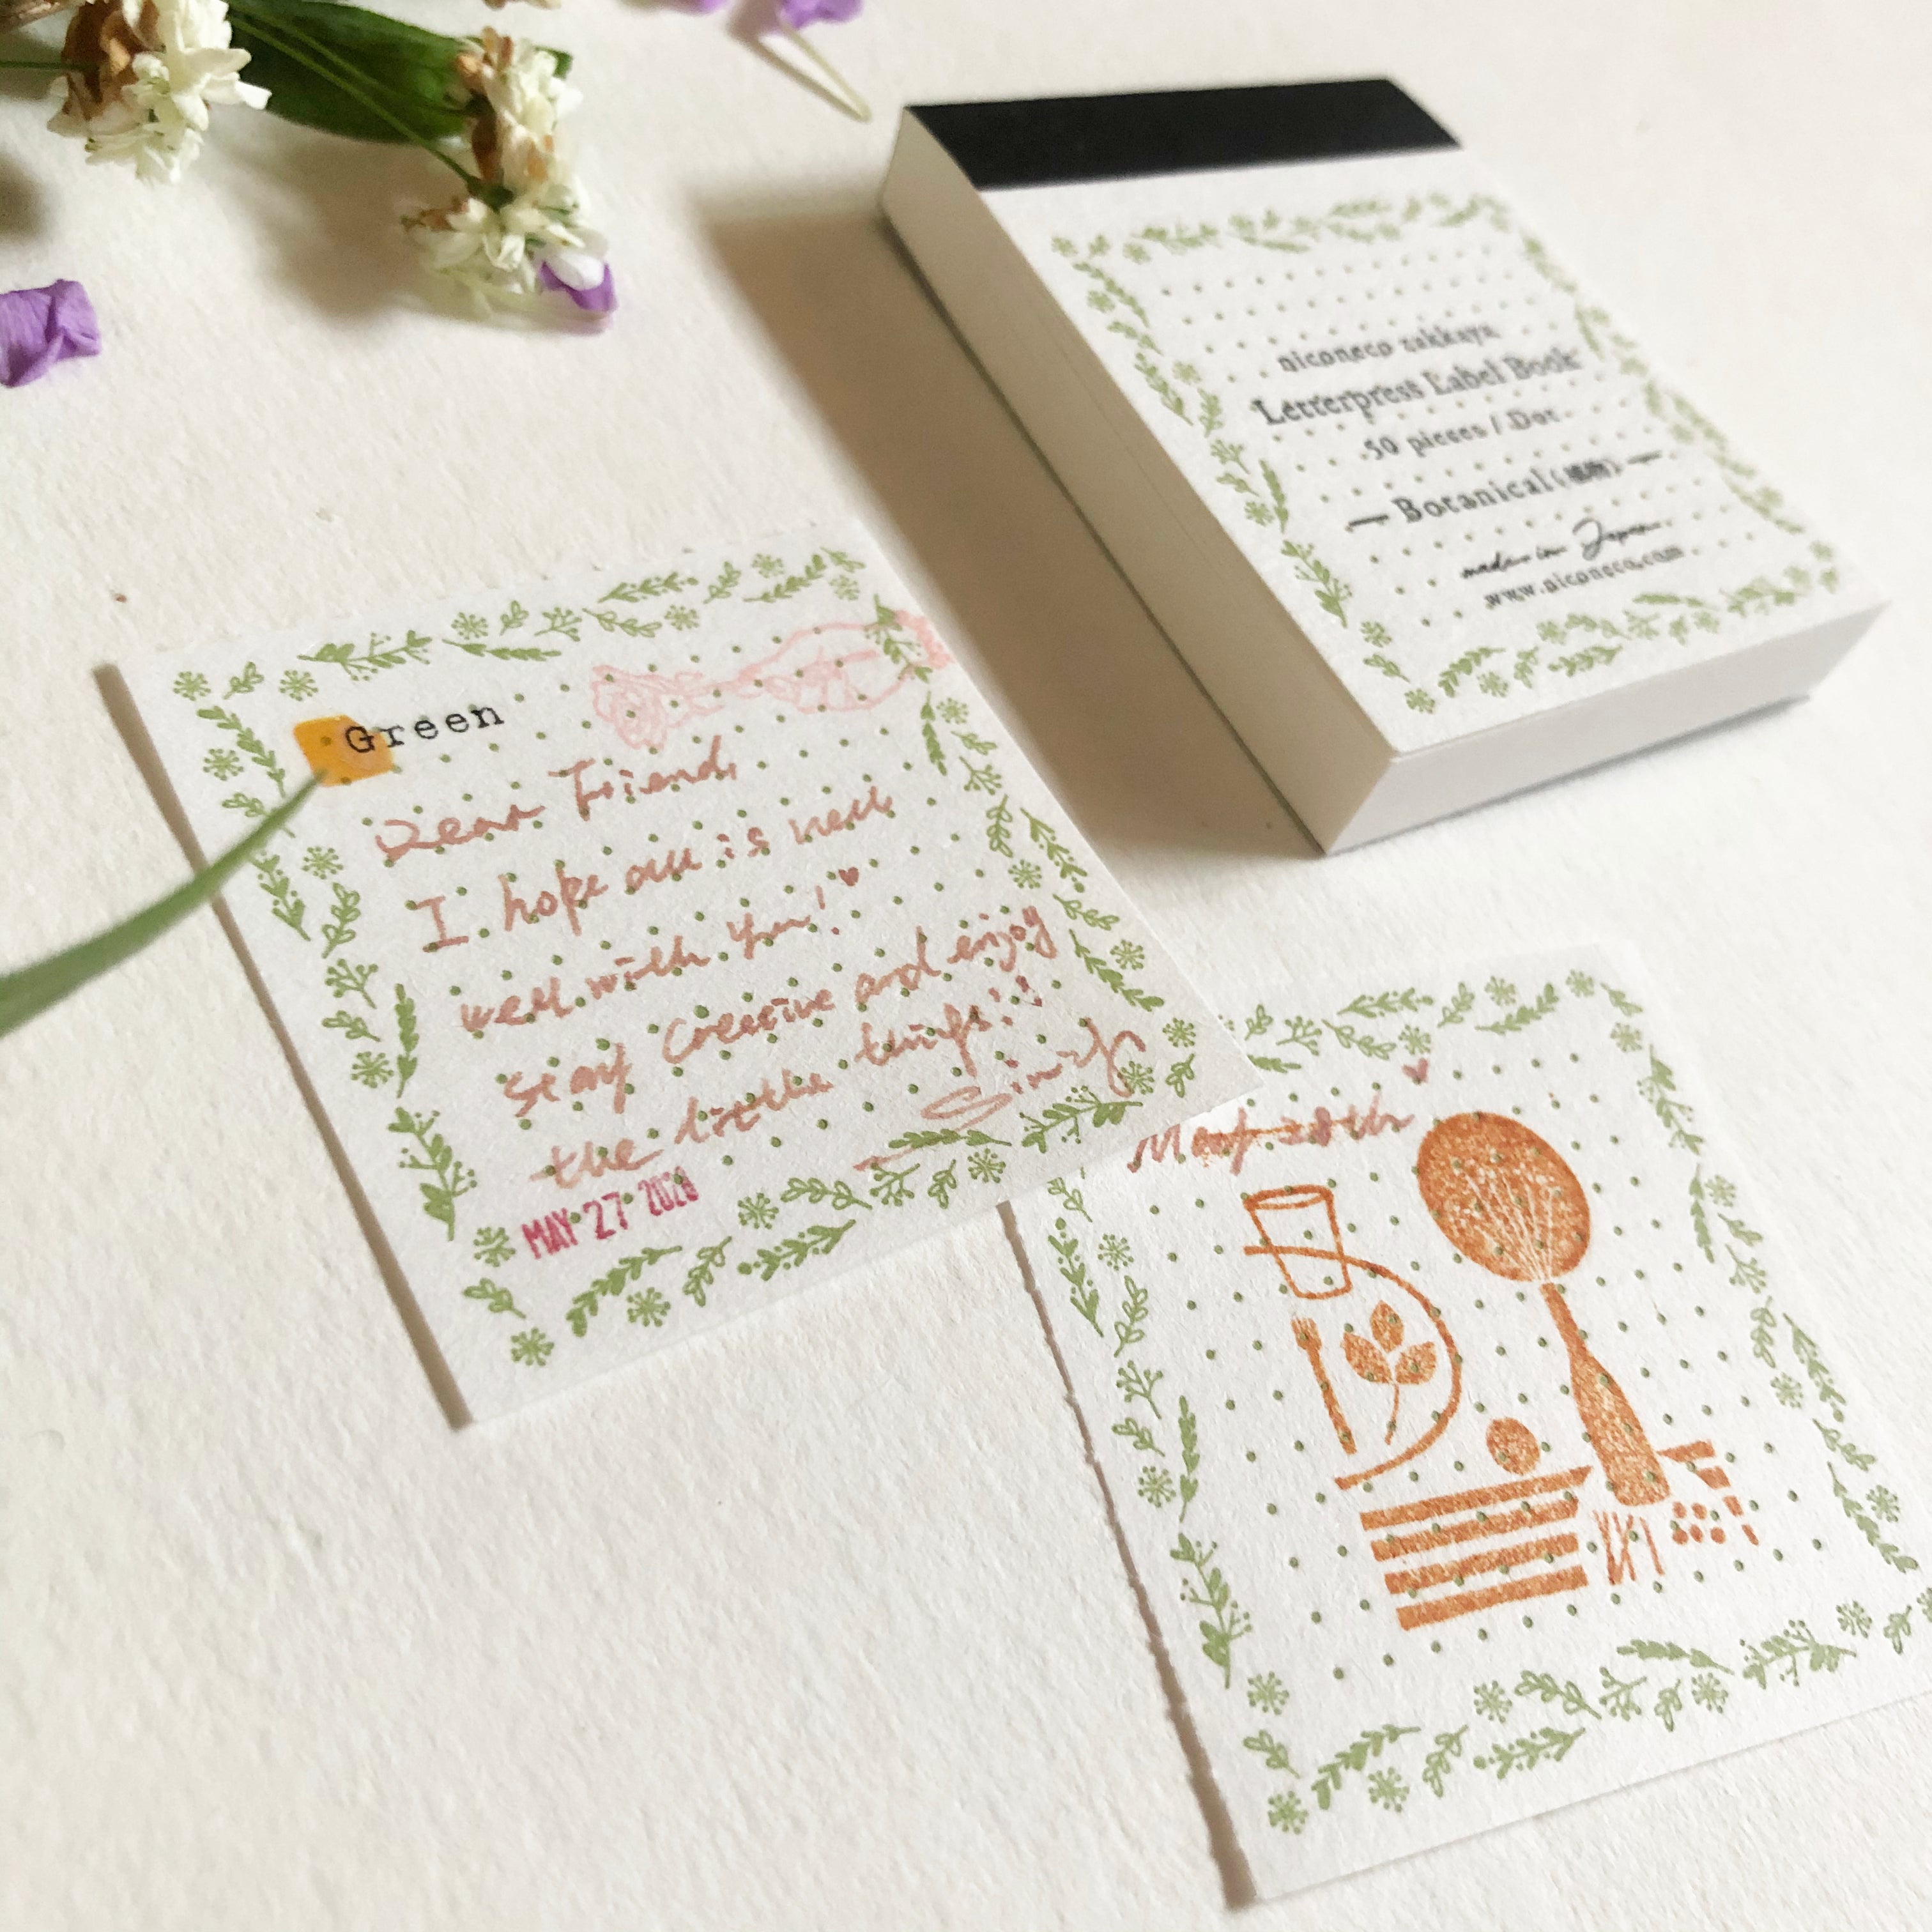 niconeco zakkaya
Letterpress Label Book
50 pieces / Dot
Botanical (植物)
made in Japan
www.niconeco.com
Green
Dear Friend,
I hope all is well
well with you!
Stay creative and enjoy
the little things!
MAY 27 2020
May 28th